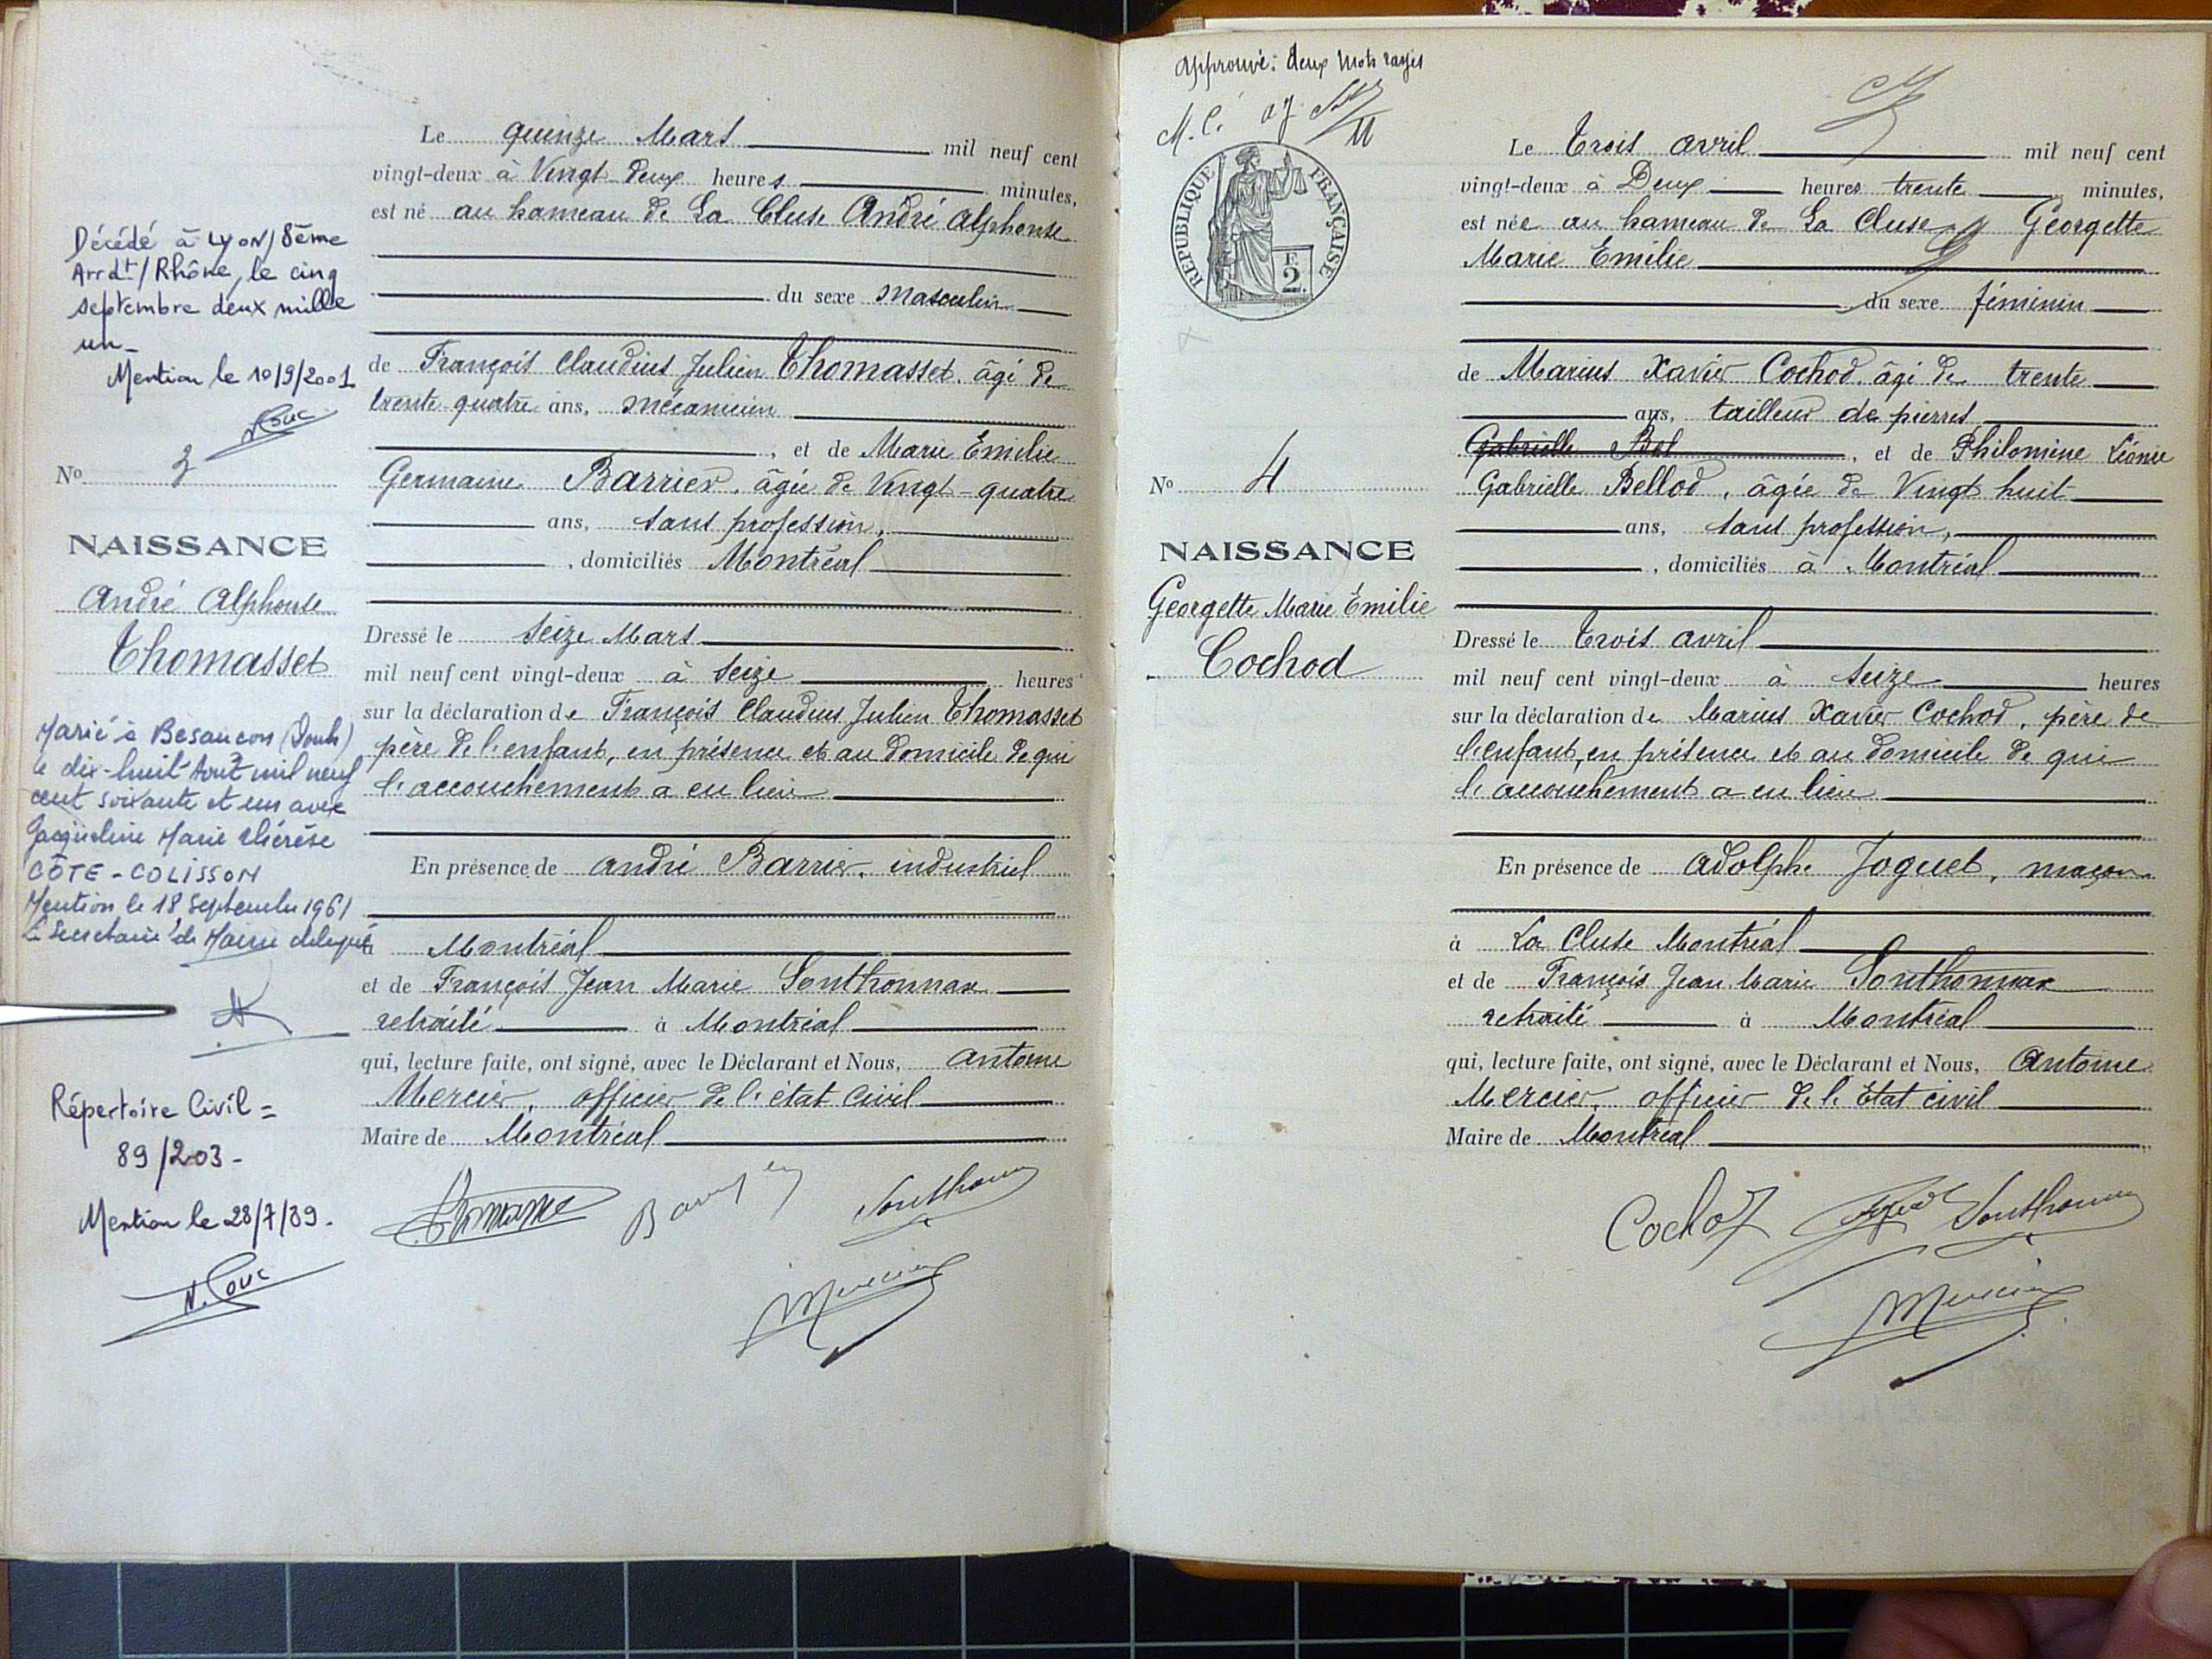 Le quinze Mars mil neuf cent
vingt-deux à Vingt-deux heures minutes,
est né au hameau de La Cluse André Alphonse
du sexe masculin
de François Claudius Julien Thomasset, âgé de
trente-quatre ans, mécanicien
, et de Marie Emilie
Germaine Barrier, âgée de Vingt-quatre
ans, sans profession,
, domiciliés Montréal
Dressé le seize Mars
mil neuf cent vingt-deux à seize heures
sur la déclaration de François Claudius Julien Thomasset
père de l'enfant, en présence et au domicile de qui
l'accouchement a eu lieu
En présence de André Barrier, industriel
à Montréal
et de François Jean Marie Sonthonnax
retraité à Montréal
qui, lecture faite, ont signé, avec le Déclarant et Nous, Antoine
Mercier, officier de l'état civil
Maire de Montréal
Décédé à LYON/8ème
Arrdt/Rhône, le cinq
septembre deux mille
un-
Mention le 10/9/2001
No 3
NAISSANCE
André Alphonse
Thomasset
Marié à Besançon (Doubs)
le dix-huit Août mil neuf
cent soixante et un avec
Jacqueline Marie Thérèse
CÔTE-COLISSON
Mention le 18 Septembre 1961
Le Secrétaire de Mairie délégué
Répertoire Civil =
89/203-
Mention le 28/7/89.
N. Couc
Approuvé: deux mots rayés
RÉPUBLIQUE FRANÇAISE
F.
2
No 4
NAISSANCE
Georgette Marie Emilie
Cochod
Le Trois avril mil neuf cent
vingt-deux à Deux heures trente minutes,
est née au hameau de La Cluse Georgette
Marie Emilie
du sexe féminin
de Marius Xavier Cochod, âgé de trente
ans, tailleur de pierres
Gabrielle Bel , et de Philomine Léonie
Gabrielle Bellod, âgée de Vingt huit
ans, sans profession,
, domiciliés à Montréal
Dressé le Trois avril
mil neuf cent vingt-deux à seize heures
sur la déclaration de Marius Xavier Cochod, père de
l'enfant, en présence et au domicile de qui
l'accouchement a eu lieu
En présence de Adolphe Joguet, maçon
à La Cluse Montréal
et de François Jean Marie Sonthonnax
retraité à Montréal
qui, lecture faite, ont signé, avec le Déclarant et Nous, Antoine
Mercier, officier de l'Etat civil
Maire de Montréal
Cochod